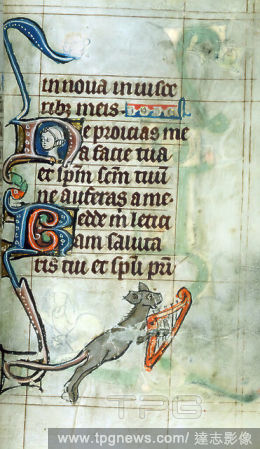 in noua in uiscer
ribz meis
Ne proicias me
a facie tua
et spm scm tuu
ne auferas a me.
Redde m letici
am saluta
ris tui et spu pri
TPG
www.tpgnews.com/ 達志影像